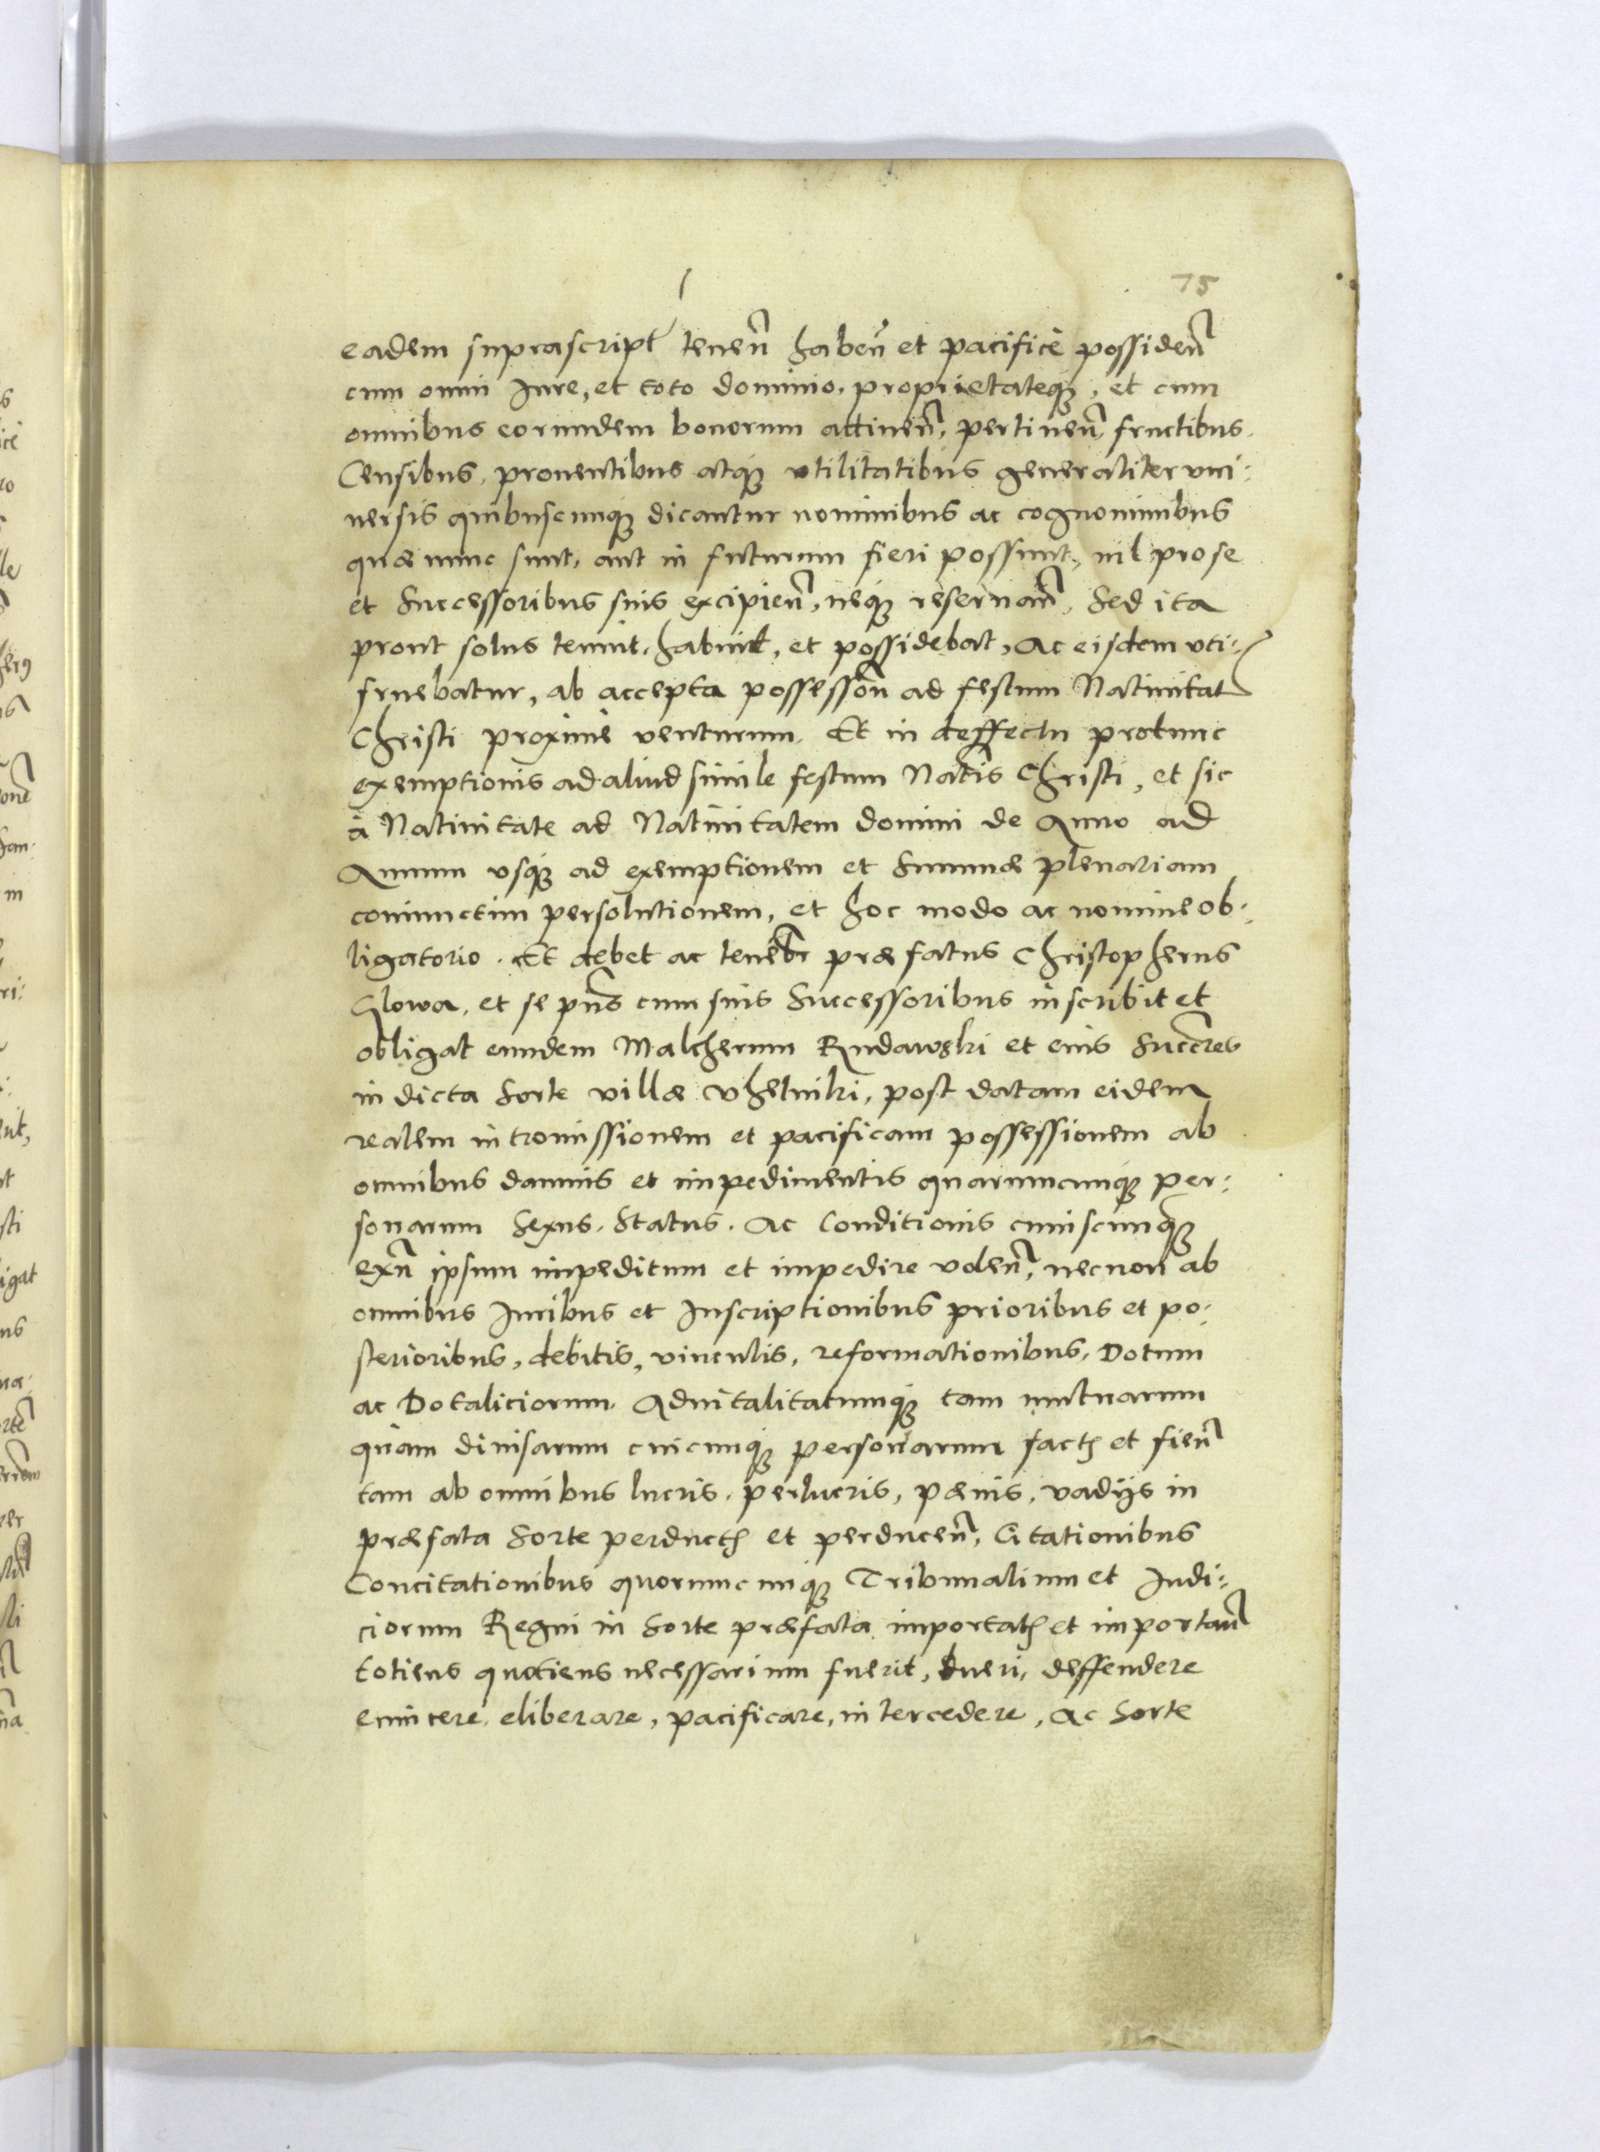 75
eadem suprascript tenen haben et pacifice possiden
cum omni Iure, et toto dominio, proprietateq, et cum
omnibus eorundem bonorum attinen, pertinen, fructibus,
Censibus, prouentibus atq vtilitatibus generaliter vni:
uersis quibuscunq dicantur nominibus ac cognominibus
quæ nunc sunt, aut in futurum fieri possunt, nil pro se
et Successoribus suis excipien, neq reseruan, Sed ita
prout solus tenuit, habuit, et possidebat, Ac eisdem vti:
fruebatur, ab accepta possession ad festum Natiuitat
Christi proxime venturum. Et in deffectu protunc
exemptionis ad aliud simile festum Natis Christi, et sic
à Natiuitate ad Natiuitatem domini de Anno ad
Annum vsq ad exemptionem et Summæ plenariam
coniunctim persolutionem, et hoc modo ac nomine ob:
ligatorio. Et debet ac tenebr præfatus Christopherus
Glowa, et se pns cum suis Successoribus inscribit et
obligat eundem Malcherum Rudawski et eius Succres
in dicta Sorte villæ Vhelniki, post datam eidem
realem intromissionem et pacificam possessionem ab
omnibus damnis et impedimentis quarumcunq per:
sonarum Sexus, Status, Ac Conditionis cuiuscunq
exn ipsum impeditum et impedire volen, necnon ab
omnibus Iuribus et Inscriptionibus prioribus et po:
sterioribus, debitis, vinculis, reformationibus, Dotum
ac Dotaliciorum, Aduitalitatumq tam mutuarum
quam diuisarum cuicunq personarum fact et fien
tam ab omnibus lucris, perlucris, pænis, vadijs in
præfata Sorte perduct et perducen, Citationibus
Concitationibus quorumcunq Tribunalium et Iudi:
ciorum Regni in Sorte præfata importat et importan
totiens quotiens necessarium fuerit, tueri, deffendere
euincere, eliberare, pacificare, intercedere, Ac Sorte